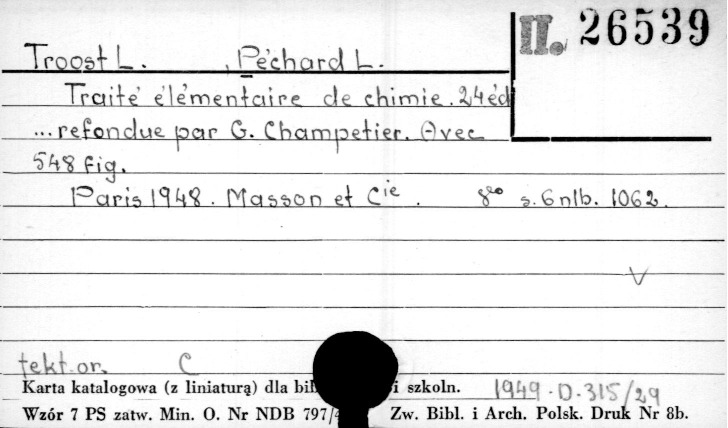 II. 26539
Troost L. , Péchard L.
Traité élémentaire de chimie. 24 éd
... refondue par G. Champetier. Avec
548 fig.
Paris 1948. Masson et Cie. 8vo s. 6 nlb. 1062.
V
tekt. or. C
Karta katalogowa (z liniaturą) dla i szkoln. 1949.D.315/29
Wzór 7 PS zatw. Min. O. Nr NDB 797/ Zw. Bibl. i Arch. Polsk. Druk Nr 8b.